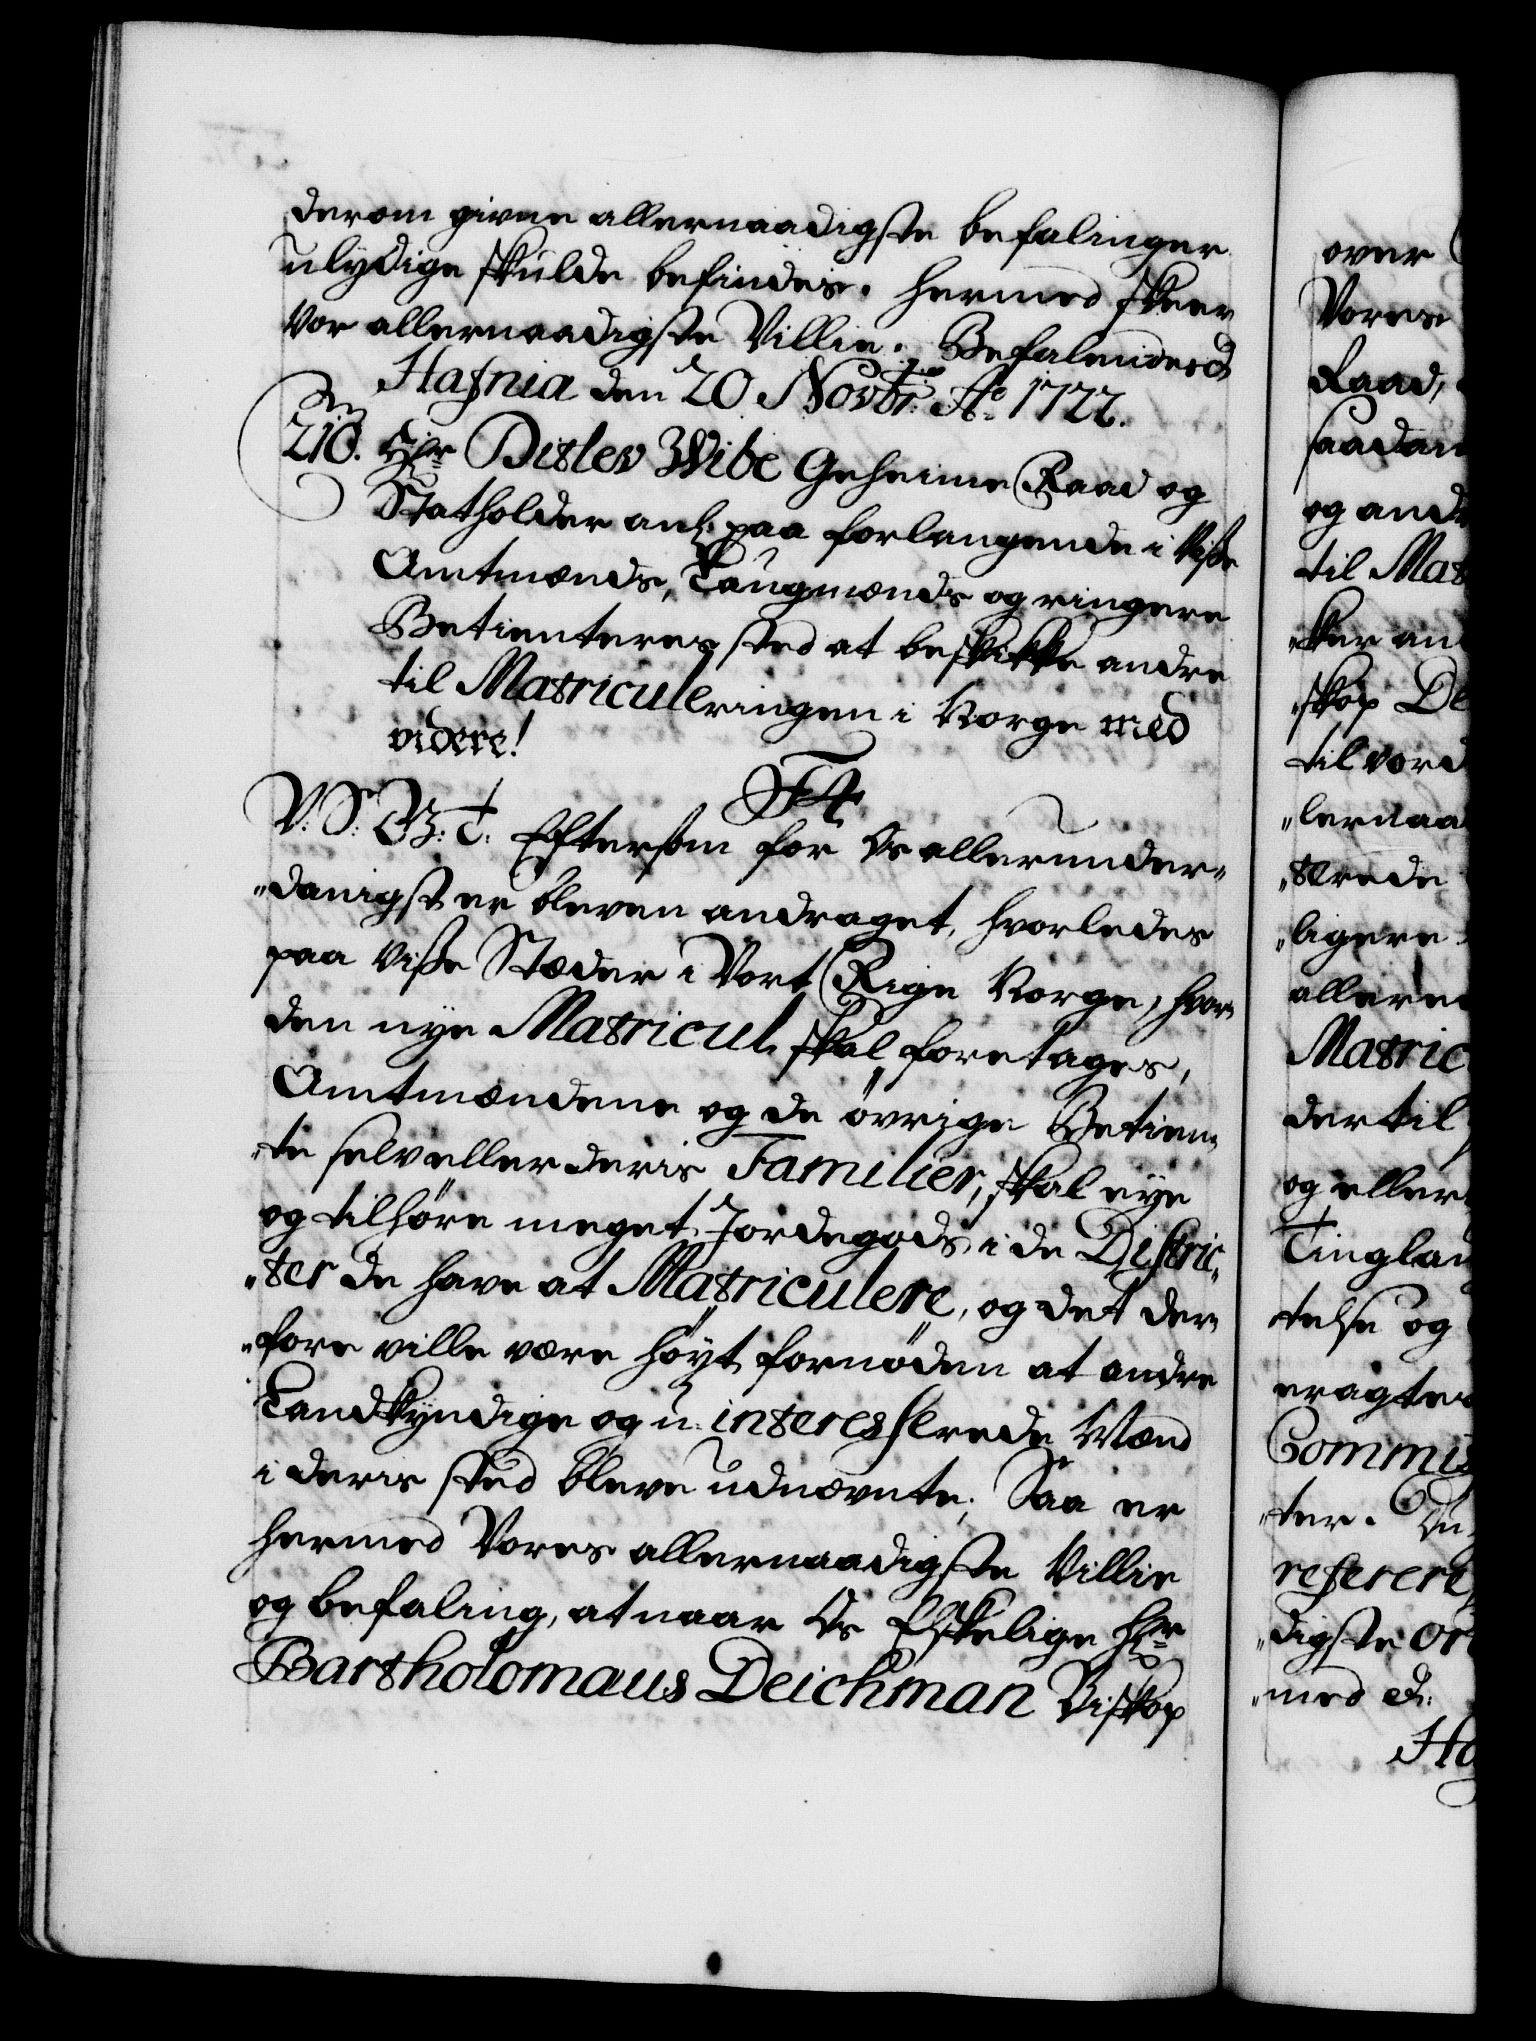 derom givne allernaadigste befalinger
ulydige skulde befindes. Hermed skeer
vor allernaadigste Villie. Befalendes
Hafnia den 20 Novbr: Ao 1722.
210. Hr Ditlev Wibe Geheime Raad og
Statholder anl: paa forlangende i visse
Amtmænds, Laugmænds og ringere
Betienteres sted at beskikke andre
til Matriculeringen i Norge med
videre!
F4
V. S: G: T: Eftersom for Os allerunder„
„danigst er bleven andraget, hvorledes
paa visse Stæder i Vort Rige Norge, hvor
den nye Matricul skal foretages,
Amtmændene og de övrige Betien„
„te selv eller deris Familier, skal eye
og tilhöre meget Jordegods i de Distric„
„ter de have at Matriculere, og det der„
„fore ville være höyt fornöden at andre
Landkyndige og u-interesserede Mænd
i deris sted bleve udnævnte; Saa er
hermed Vores allernaadigste Villie
og befaling, at naar Os Elskelige Hr
Bartholomæus Deichman Biskop
over
Vores
Raad,
saadan
og andr
til Mat
„ker an
skop De
til vord
„lernaa
„terede
„ligere
allere
Matric
dertil
og eller
Tinglau
telse og
eragte
Commis
„ter. Du
referere
„digste or
„med di:
Ha